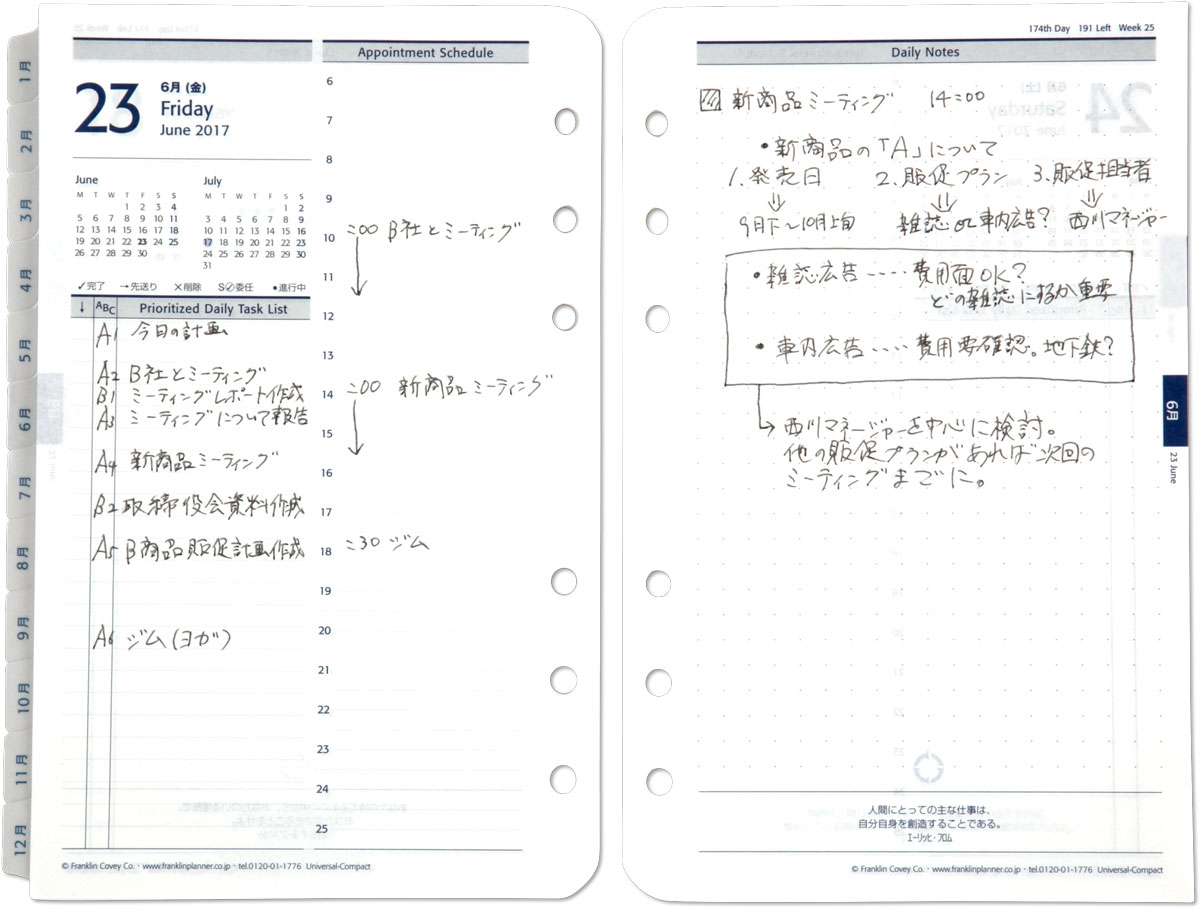 1月
2月
3月
4月
5月
6月
7月
8月
9月
10月
11月
12月
23
6月 (金)
Friday
June 2017
June
M T W T F S S
1 2 3 4
5 6 7 8 9 10 11
12 13 14 15 16 17 18
19 20 21 22 23 24 25
26 27 28 29 30
July
M T W T F S S
1 2
3 4 5 6 7 8 9
10 11 12 13 14 15 16
17 18 19 20 21 22 23
24 25 26 27 28 29 30
31
✓完了 →先送り ×削除 S✓委任 •進行中
↓ ABC Prioritized Daily Task List
A1 今日の計画
A2 B社とミーティング
B1 ミーティングレポート作成
A3 ミーティングについて報告
A4 新商品ミーティング
B2 取締役会資料作成
A5 B商品販促計画作成
A6 ジム(ヨガ)
Appointment Schedule
6
7
8
9
10 :00 B社とミーティング
11
12
13
14 :00 新商品ミーティング
15
16
17
18 :30 ジム
19
20
21
22
23
24
25
© Franklin Covey Co. · www.franklinplanner.co.jp · tel.0120-01-1776 Universal-Compact
174th Day 191 Left Week 25
Daily Notes
新商品ミーティング 14:00
•新商品の「A」について
1.発売日 2.販促プラン 3.販促担当者
9月下〜10月上旬 雑誌or車内広告? 西川マネージャー
•雑誌広告‥‥費用面OK?
どの雑誌にするか重要
•車内広告‥‥費用要確認。地下鉄?
西川マネージャーを中心に検討。
他の販促プランがあれば次回の
ミーティングまでに。
6月
23 June
人間にとっての主な仕事は、
自分自身を創造することである。
エーリッヒ・フロム
© Franklin Covey Co. · www.franklinplanner.co.jp · tel.0120-01-1776 Universal-Compact